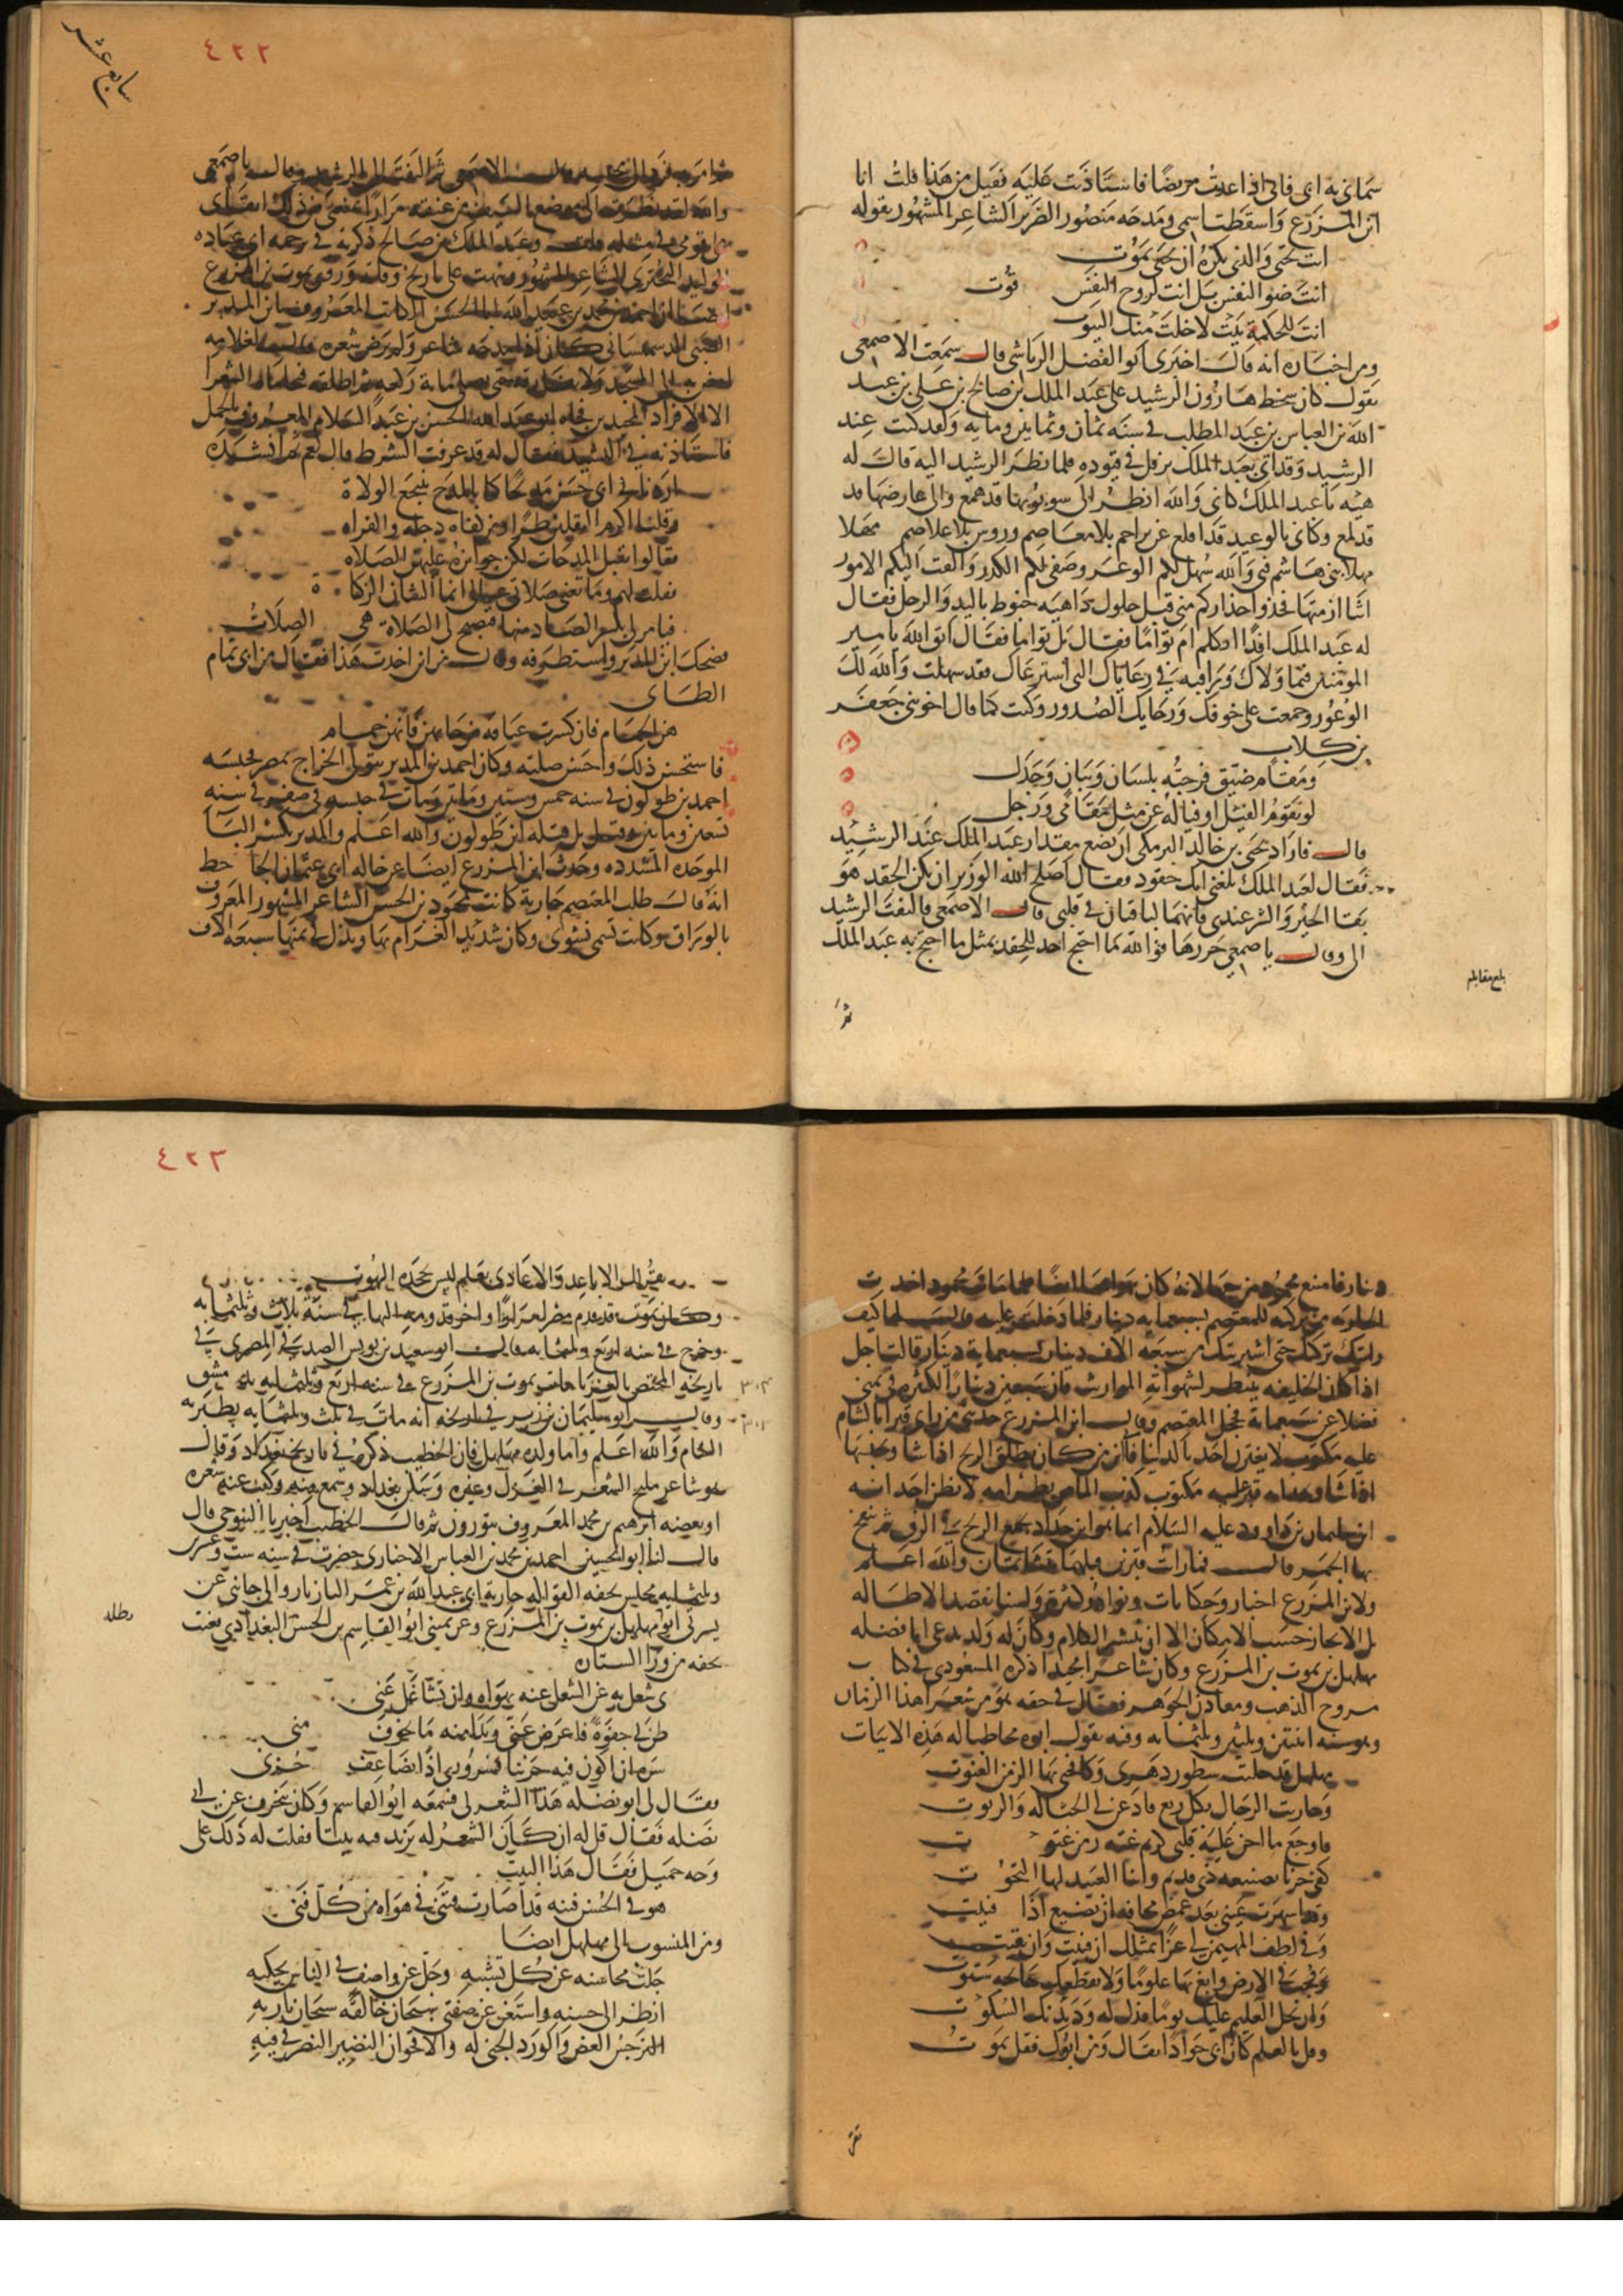 سماني به ابي فاني اذا عدت مريضا فاستاذنت عليه فقيل من هذا قلت انا
ابن المزرع واسقطت اسمي ومدحه منصور الضرير الشاعر المشهور بقوله
انت تحيى والذي يكره ان تحيى يموت
انت ضو النفس بل انت لروح النفس قوت
انت للحكمة بيت لا خلت منك البيوت
ومن اخباره انه قال اخبرني ابو الفضل الرياشي قال سمعت الاصمعي
يقول كان سخط هارون الرشيد على عبد الملك بن صالح بن علي بن عبد
الله بن العباس بن عبد المطلب في سنة ثمان وثمانين وماية ولقد كنت عند
الرشيد وقد اتي بعبد الملك يرفل في قيوده فلما نظر الرشيد اليه قال له
هيه يا عبد الملك كاني والله انظر الى شوبوبها قد همع والى عارضها قد
قد لمع وكاني بالوعيد قد اقلع عن براجم بلا معاصم وروس بلا غلاصم مهلا
مهلا بني هاشم فبي والله سهل لكم الوعر وصفى لكم الكدر والقت اليكم الامور
اثنا ازمتها فخذوا حذاركم مني قبل حلول داهيه خبوط باليد والرجل فقال
له عبد الملك افذا اتكلم ام تواما فقال بل تواما فقال اتق الله يا امير
المومنين فيما ولاك وراقبه في رعاياك التي استرعاك فقد سهلت والله لك
الوعور وجمعت على خوفك ورجايك الصدور وكنت كما قال اخو بني جعفر
بن كلاب
ومقام ضيق فرجته بلسان وبيان وجدل
لو يقوم الفيل او فياله عن مثل مقامي وزحل
قال فاراد يحيى بن خالد البرمكي ان يضع مقدار عبد الملك عند الرشيد
فقال لعبد الملك بلغني انك حقود فقال اصلح الله الوزير ان يكن الحقد هو
بقا الخير والشر عندي فانهما لباقيان في قلبي قال الاصمعي فالتفت الرشيد
الي وقال يا صمعي حررها فوالله ما احتج احد للحقد بمثل ما احتج به عبد الملك
بلغ مقابله
ثم
٤٢٢
سابع عشر
ثم امر به فرد الى محبسه قال الاصمعي ثم التفت الي الرشيد وقال يا صمعي
والله لقد نظرت الى موضع السيف من عنقه مرارا يمنعني من ذلك ابقاي
على قومي في مثله قلت وعبد الملك بن صالح ذكرته في ترجمه ابي عباده
الوليد البحتري الشاعر المشهور ونبهت على تاريخ وفاته وروى يموت بن المزرع
ايضا ان احمد بن محمد بن عبيد الله ابا الحسن الكاتب المعروف بابن المدبر
الضبي الدسمساني كان اذا مدحه شاعر ولم يرض شعره قال لغلامه
امض به الى المسجد ولا تفارقه حتى يصلي ماية ركعه ثم اطلقه فتحاماه الشعرا
الا الافراد المجيدين فجاه ابو عبد الله الحسن بن عبد السلام المعروف بالجمل
فاستاذنه في النشيد فقال له قد عرفت الشرط قال نعم ثم انشده
اردنا في ابي حسن مديحا كما بالمدح ينتجع الولاة
وقلنا اكرم الثقلين طرا ومن كفاه دجلة والفراه
فقالوا يقبل المدحات لكن جوايزه عليهن الصلاه
فقلت لهم وما تغني صلاتي عيالي انما الشان الزكاة
فيامر لي بكسر الصاد منها فتصبح لي الصلاة هي الصلات
فضحك ابن المدبر واستظرفه وقال من اين اخذت هذا فقال من ابي تمام
الطاي
هن الحمام فان كسرت عيافة من حايهن فانهن حمام
فاستحسن ذلك واحسن صلته وكان احمد بن المدبر يتولى الخراج بمصر فحبسه
احمد بن طولون في سنه خمس وستين وماتين ومات في حبسه في صفر في سنه
تسعين وماتين وقيل بل قتله ابن طولون والله اعلم والمدبر بكسر البا
الموحده المشدده وحدث ابن المزرع ايضا عن خاله ابي عثمان الجاحظ
انه قال طلب المعتصم جارية كانت لمحمود بن الحسن الشاعر المشهور المعروف
بالوراق وكانت تسمى نشوى وكان شديد الغرام بها وبذل في ثمنها سبعه الاف
دينار فامتنع محمود من بيعها لانه كان يهواها ايضا فلما مات محمود اخذت
الجاريه من تركته للمعتصم بسبعمايه دينار فلما دخلت عليه قال لها كيف
رايت تركتك حتى اشتريتك من سبعه الاف دينار بسبعماية دينار قالت اجل
اذا كان الخليفه ينتظر لشهواته المواريث فان سبعين دينارا لكثيرة في ثمني
فضلا عن سبعماية فخجل المعتصم وقال ابن المزرع حدثني من راى قبرا بالشام
عليه مكتوب لا يغترن احد بالدنيا فاني ابن من كان يطلق الريح اذا شا ويحبسها
اذا شا وبحذاه قبر عليه مكتوب كذب الماص بظر امه لا يظن احد انه
ابن سليمان بن داوود عليه السلام انما هو ابن حداد يجمع الريح في الزق ثم ينفخ
بها الجمر قال فما رايت قبرين قبلهما يتشاتمان والله اعلم
ولابن المزرع اخبار وحكايات ونوادر كثيرة ولسنا نقصد الاطاله
بل الايجاز حسب الامكان الا ان ينتشر الكلام وكان له ولد يدعى ابا نضله
مهلهل بن يموت بن المزرع وكان شاعرا مجيدا ذكره المسعودي في كتاب
مروج الذهب ومعادن الجوهر فقال في حقه هو من شعرا هذا الزمان
وهو سنه اثنتين وثلثين وثلثمايه وفيه يقول ابوه مخاطبا له هذه الابيات
مهلهل قد حلبت سطور دهري وكافحني بها الزمن العنوت
وحاربت الرجال بكل ربع فاذعن لي الحثاله والربوت
فاوجع ما اجن عليه قلبي كريم غته زمن غتوت
كفى حزنا بضيعه ذي قديم وابنا العبيد لها التخوت
وقد اسهرت عيني بعد غمض مخافه ان تضيع اذا فنيت
وفي لطف المهيمن لي عزا بمثلك ان فنيت وان بقيت
فجب في الارض وابغ بها علوما ولا تقطعك جايحه سبوت
وان بخل العليم عليك يوما فذل له وديدنك السكوت
وقل بالعلم كان ابي جوادا يقال ومن ابوك فقل يموت
تقر
٤٢٣
يقر لك الاباعد والاعادي بعلم ليس يجحده البهوت
وكان يموت قد قدم مصر مرارا واخر قدومه اليها في سنة ثلاث وثلثمايه
وخرج في سنه اربع وثلثمايه قال ابو سعيد بن يونس الصدفي المصري في
تاريخه المختص بالغربا مات يموت بن المزرع في سنه اربع وثلثمايه بدمشق
وقال ابو سليمان بن زبر في تاريخه انه مات في ثلث وثلثمايه بطبريه
الشام والله اعلم واما ولده مهلهل فان الخطيب ذكره في تاريخ بغداد وقال
هو شاعر مليح الشعر في الغزل وغيره وسكن بغداد وسمع منه وكتب عنه شعره
او بعضه ابرهيم بن محمد المعروف بتوزون ثم قال الخطيب اخبرنا التنوخي قال
قال لنا ابو الحسين احمد بن محمد بن العباس الاخباري حضرت في سنه ست وعشرين
وثلثمايه مجلس تحفه القواله جارية ابي عبد الله بن عمر البازيار والى جانبي عن
يسرتي ابو نضله مهلهل بن يموت بن المزرع وعن يميني ابو القاسم بن الحسن البغدادي فغنت
تحفه من ورا الستاره
بي شغل به عن الشغل عنه بهواه وان تشاغل عني
ظن بي جفوة فاعرض عني وبدا منه ما تخوف مني
سره ان اكون فيه حزينا فسروري اذا تضاعف حزني
فقال لي ابو نضله هذا الشعر لي فسمعه ابو القاسم وكان ينحرف عن ابي
نضله فقال قل له ان كان الشعر له يزيد فيه بيتا فقلت له ذلك على
وجه جميل فقال هذا البيت
هو في الحسن فتنه قد اصارت فتنتي في هواه من كل فن
ومن المنسوب الى مهلهل ايضا
جلت محاسنه عن كل تشبيه وجل عن واصف في الناس يحكيه
انظر الى حسنه واستغن عن صفتي سبحان خالقه سبحان باريه
النرجس الغض والورد الجني له والاقحوان النضير النضر في فيه